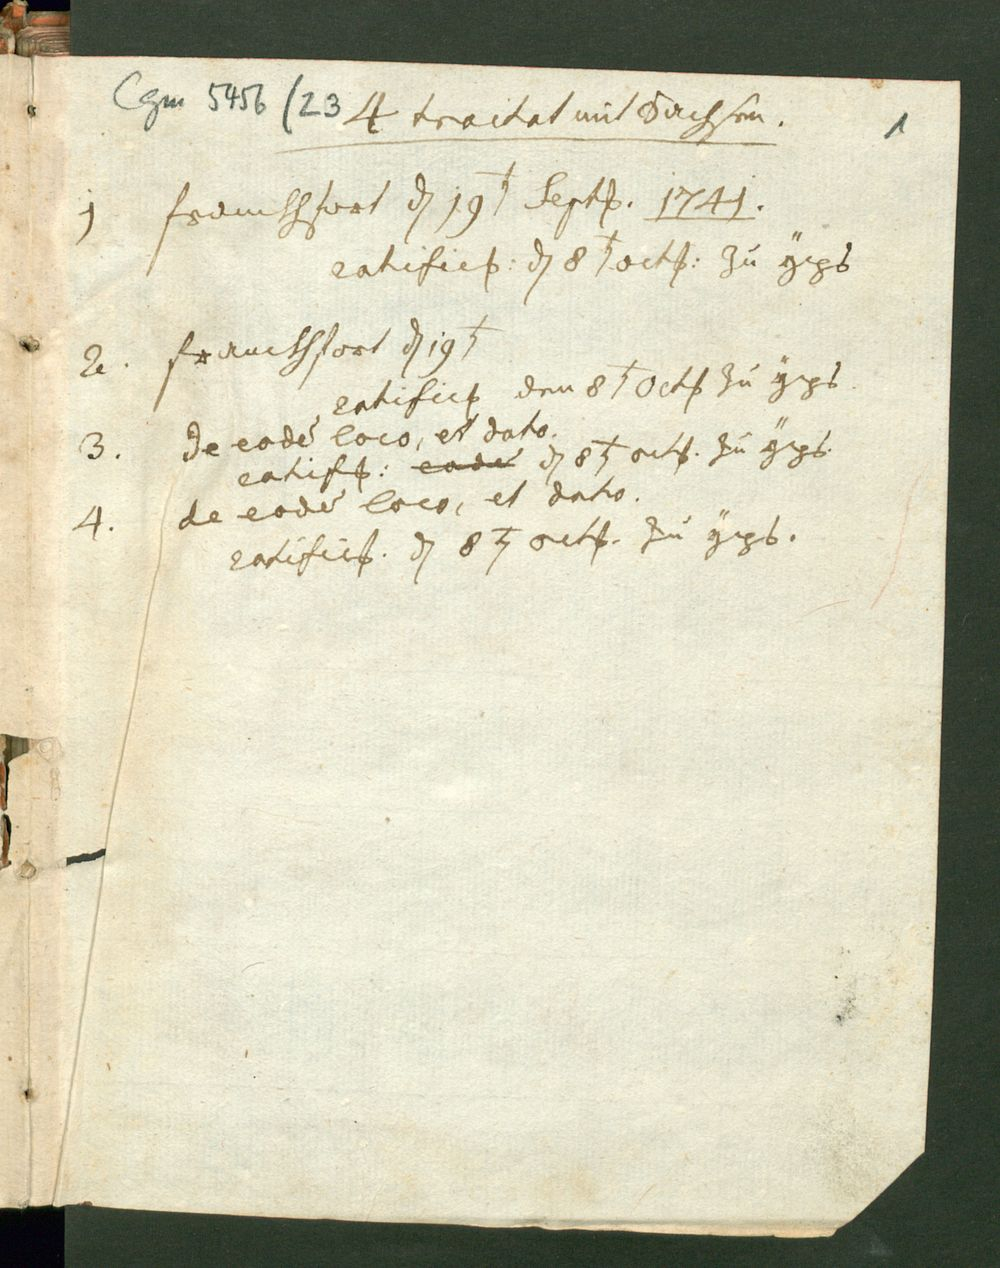 Cgm 5456 (23
4 tractat mit Sachsen.
1
1 franckhfort d 19t Septb. 1741.
ratificirt: d 8t octb: zu ÿps
2. franckhfort d 19t
ratificirt den 8t Octb zu ÿps
3. De eodē loco, et dato.
ratifirt: eodē d 8t octb. zu ÿps.
4. de eodē loco, et dato.
ratificirt. d 8t octb. zu ÿps.